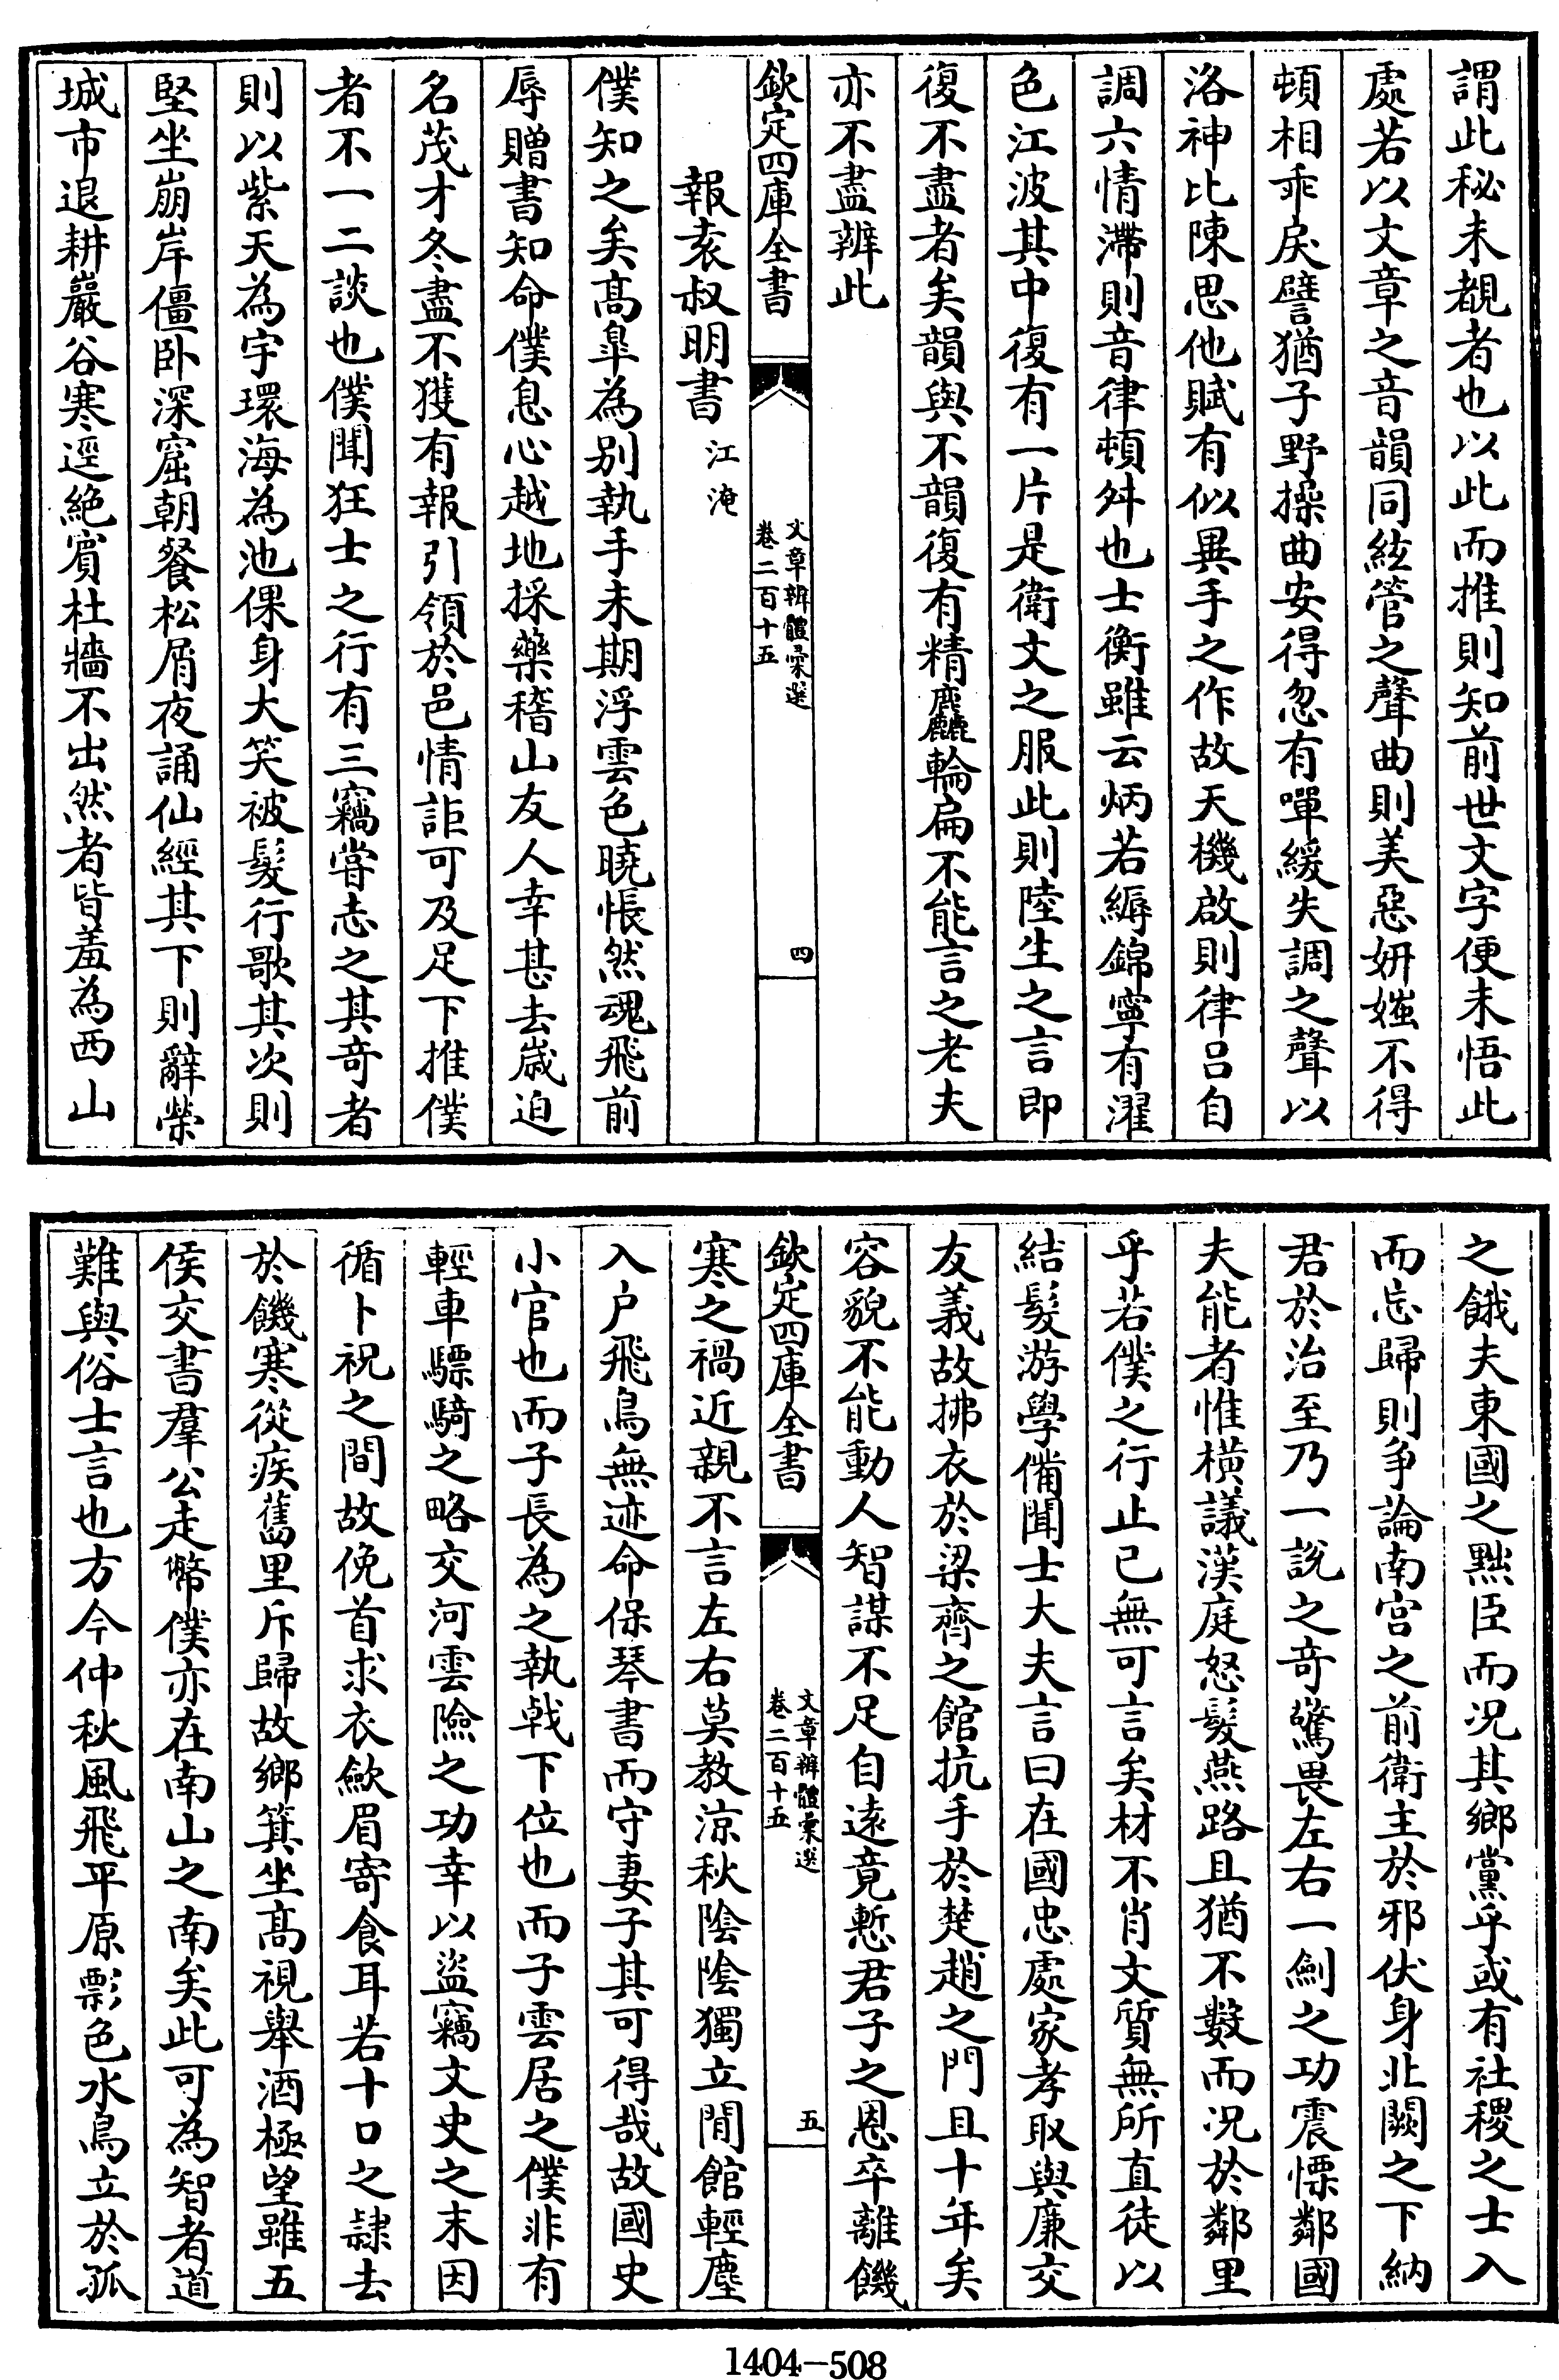 謂此秘未覩者也以此而推則知前世文字便未悟此
處若以文章之音韻同絃管之聲曲則美惡妍媸不得
頓相乖戾譬猶子野操曲安得忽有嘽緩失調之聲以
洛神比陳思他賦有似異手之作故天機啟則律呂自
調六情滯則音律頓舛也士衡雖云炳若縟錦寧有濯
色江波其中復有一片是衛文之服此則陸生之言即
復不盡者矣韻與不韻復有精麤輪扁不能言之老夫
亦不盡辨此
欽定四庫全書
文章辨體彙選
卷二百十五
四
報袁叔明書 江淹
僕知之矣高臯為别執手未期浮雲色曉悵然魂飛前
辱贈書知命僕息心越地採藥稽山友人幸甚去歲迫
名茂才冬盡不獲有報引領於邑情詎可及足下推僕
者不一二談也僕聞狂士之行有三竊嘗志之其奇者
則以紫天為宇環海為池倮身大笑被髮行歌其次則
堅坐崩岸僵卧深窟朝餐松屑夜誦仙經其下則辭榮
城市退耕巖谷寒逕絶賓杜牆不出然者皆羞為西山
之餓夫東國之黜臣而况其鄉黨乎或有社稷之士入
而忘歸則争論南宫之前衛主於邪伏身北闕之下納
君於治至乃一說之奇驚畏左右一劍之功震慄鄰國
夫能者惟横議漢庭怒髮燕路且猶不數而况於鄰里
乎若僕之行止已無可言矣材不肖文質無所直徒以
結髮游學備聞士大夫言曰在國忠處家孝取與廉交
友義故拂衣於梁齊之館抗手於楚趙之門且十年矣
容貌不能動人智謀不足自遠竟慙君子之恩卒離饑
欽定四庫全書
文章辨體彙選
卷二百十五
五
寒之禍近親不言左右莫教凉秋陰陰獨立閒館輕塵
入户飛鳥無迹命保琴書而守妻子其可得哉故國史
小官也而子長為之執戟下位也而子雲居之僕非有
輕車驃騎之略交河雲險之功幸以盜竊文史之末因
循卜祝之間故俛首求衣歛眉寄食耳若十口之隷去
於饑寒從疾舊里斥歸故鄉箕坐高視舉酒極望雖五
侯交書羣公走幣僕亦在南山之南矣此可為智者道
難與俗士言也方今仲秋風飛平原彯色水鳥立於孤
1404-508